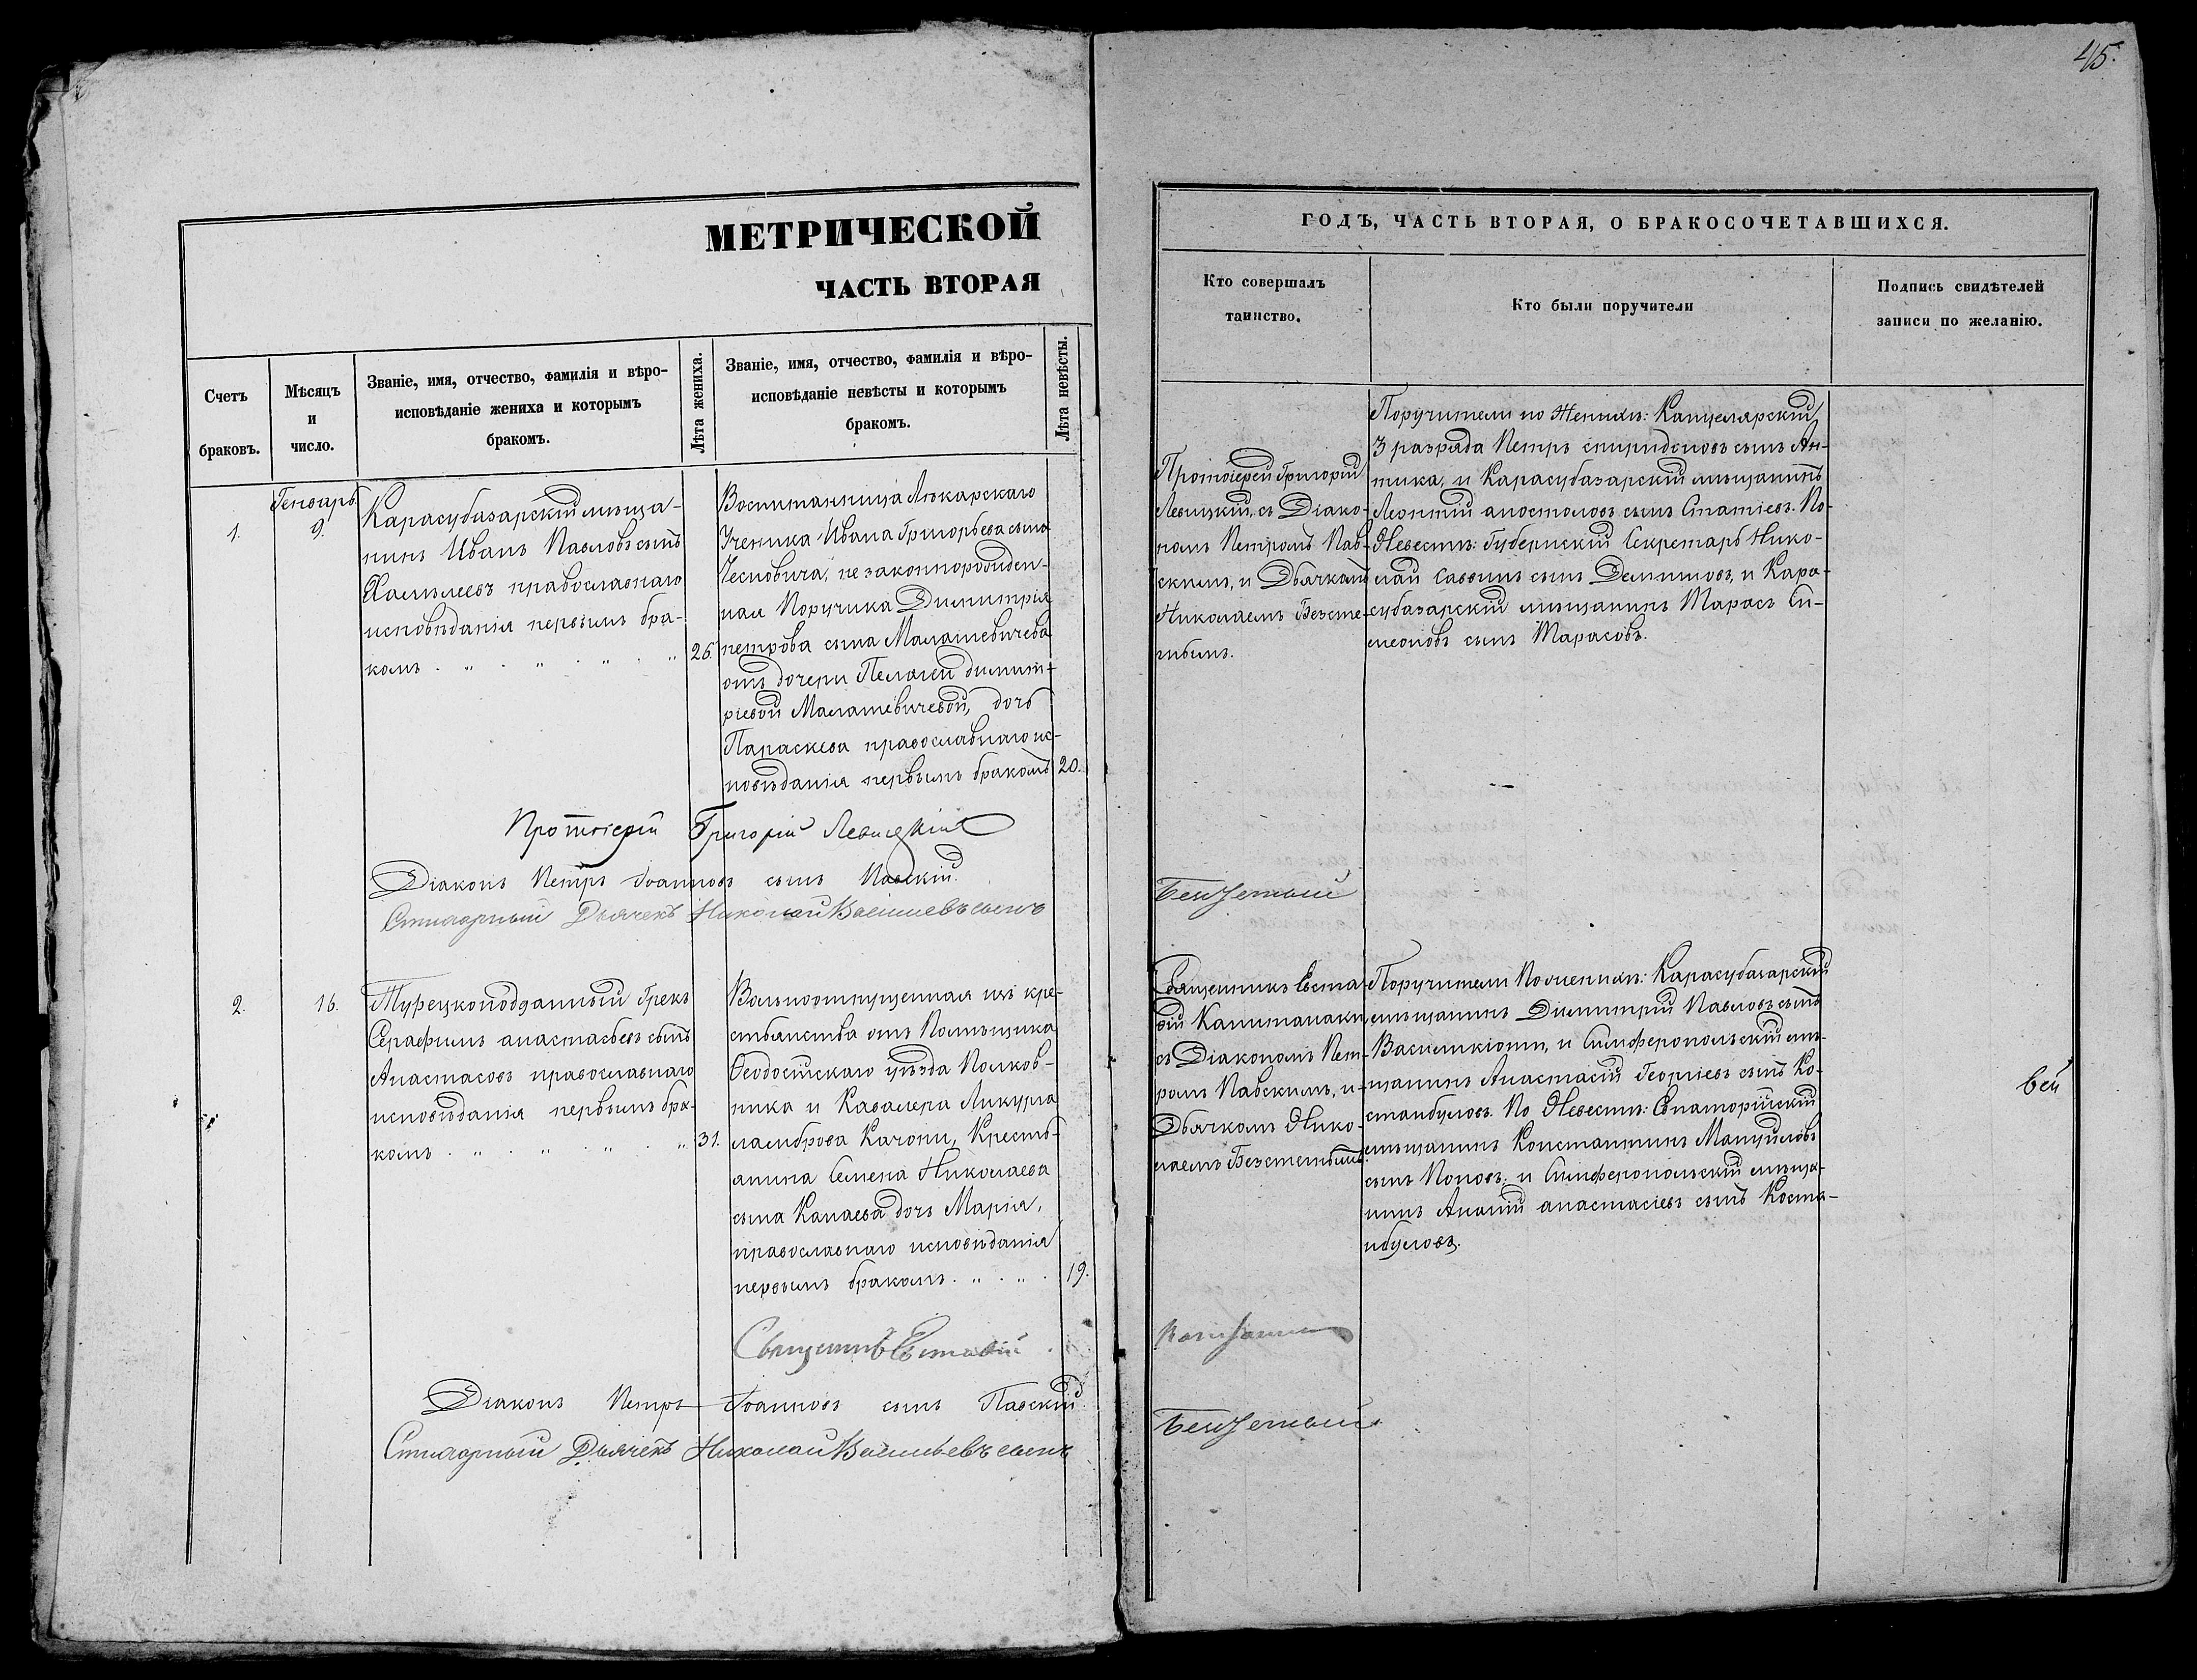 45.
МЕТРИЧЕСКОЙ
ЧАСТЬ ВТОРАЯ
Счетъ
браковъ.
Мѣсяцъ
и
число.
Званіе, имя, отчество, фамилія и вѣро-
исповѣданіе жениха и которымъ
бракомъ.
Лѣта жениха.
Званіе, имя, отчество, фамилія и вѣро-
исповѣданіе невѣсты и которымъ
бракомъ.
Лѣта невѣсты.
ГОДЪ, ЧАСТЬ ВТОРАЯ, О БРАКОСОЧЕТАВШИХСЯ.
Кто совершалъ
таинство.
Кто были поручители
Подпись свидѣтелей
записи по желанію.
1.
Генварь
9.
Карасубазарскій мѣща-
нинъ Иванъ Павловъ сынъ
православнаго
исповѣданія первымъ бра-
комъ . „ . „ . „ . „
26.
Воспитанница Лѣкарскаго
Ученика Ивана Григорьева сына
незаконнорожден-
ная Поручика Димитрія
петрова сына Малашевичева
отъ дочери Пелагеи димит-
ріевой Малашевичевой, дочь
Параскева православнаго ис-
повѣданія первымъ бракомъ
20.
Протоіерей Григорій
Левицкій, съ Діако-
номъ Петромъ Пав-
скимъ, и Дьячкомъ
Николаемъ Безсте-
тнымъ.
Поручители по Женихѣ: Канцелярскій
3 разряда Петръ спиридоновъ сынъ Ан-
тика, и Карасубазарскій мѣщанинъ
Леонтій апостоловъ сынъ Спатіевъ. По
Невестѣ: Губернскій Секретарь Нико-
лай саввинъ сынъ и Кара-
субазарскій мѣщанинъ Тарасъ Си-
меоновъ сынъ Тарасовъ.
Протоіерей Григорій Левицкій
Діаконъ Петръ Іоанновъ сынъ Павскій.
Стихарный Дьячекъ Николай Васильевъ сынъ
2.
16.
Турецкоподданный Грекъ
Серафимъ анастасьевъ сынъ
Анастасовъ православнаго
исповѣданія первымъ бра-
комъ . „ . „ . „ . „
31.
Вольноотпущенная изъ кре-
стьянства отъ Помѣщика
Ѳеодосійскаго уѣзда Полков-
ника и Кавалера Ликурга
ламброва Качони, Кресть-
янина Семена Николаева
сына Канаева дочь Марія,
православнаго исповѣданія
первымъ бракомъ . „ . „ .
19.
Священникъ Евста-
ѳій Капитанаки
съ Діакономъ Пет-
ромъ Павскимъ, и
Дьячкомъ Нико-
лаемъ
Поручители По женихѣ: Карасубазарскій
мѣщанинъ Димитрій Павловъ сынъ
Василикіоти, и Симферопольскій мѣ-
щанинъ Анастасій Георгіевъ сынъ Ко-
станбуловъ. По Невестѣ: Евпаторійскій
мѣщанинъ Константинъ Мануиловъ
сынъ Поповъ, и Симферопольскій мѣща-
нинъ Ананій анастасіевъ сынъ Коста-
нбуловъ.
вей
Священникъ Евстаѳій
Діаконъ Петръ Іоанновъ сынъ Павскій
Стихарный Дьячекъ Николай Васильевъ сынъ